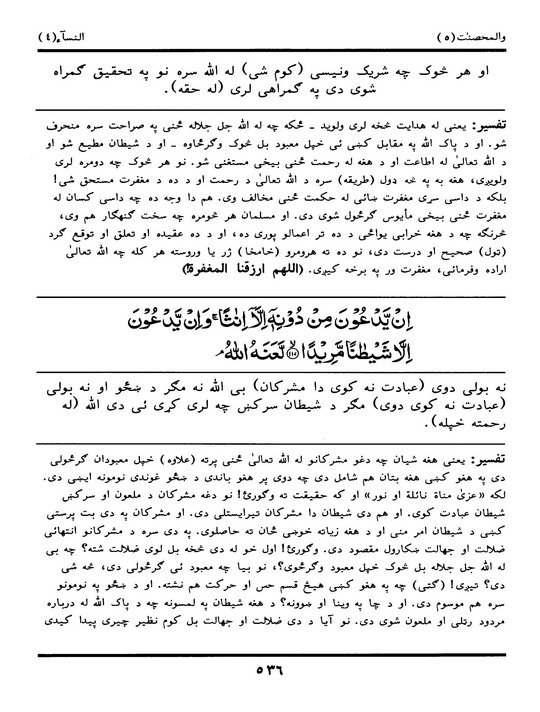 والمحصنٰت (٥)
النسآء (٤)
او هر څوک چه شریک ونیسی (کوم شی) له الله سره نو په تحقیق گمراه
شوی دی په گمراهی لری (له حقه).
تفسیر: یعنی له هدایت څخه لری ولوید ــ ځکه چه له الله جل جلاله ځنی په صراحت سره منحرف
شو. او د پاک الله په مقابل کښی ئی خپل معبود بل څوک وگرځاوه ــ او د شیطان مطیع شو او
د الله تعالیٰ له اطاعت او د هغه له رحمت ځنی بیخی مستغنی شو. نو هر څوک چه دومره لری
ولویږی، هغه به په څه ډول (طریقه) سره د الله تعالیٰ د رحمت او د ده د مغفرت مستحق شی!
بلکه د داسی سړی مغفرت ښائی له حکمت ځنی مخالف وی. هم دا وجه ده چه داسی کسان له
مغفرت ځنی بیخی مأیوس گرځول شوی دی. او مسلمان هر څومره چه سخت گنهگار هم وی،
څرنگه چه د هغه خرابی یوائځی د ده تر اعمالو پوری ده، او د ده عقیده او تعلق او توقع گرد
(ټول) صحیح او درست دی، نو ده ته هرومرو (خامخا) ژر یا وروسته هر کله چه الله تعالیٰ
اراده وفرمائی، مغفرت ور په برخه کیږی. (اللهم ارزقنا المغفرة!)
اِنۡ يَّدۡعُوۡنَ مِنۡ دُوۡنِهٖۤ اِلَّاۤ اِنٰثًا‌ۚ وَاِنۡ يَّدۡعُوۡنَ
اِلَّا شَيۡطٰنًا مَّرِيۡدًا ۙ‏﴿۱۱۷﴾ لَّعَنَهُ اللّٰهُ‌ ۘ
نه بولی دوی (عبادت نه کوی دا مشرکان) بی الله نه مگر د ښځو او نه بولی
(عبادت نه کوی دوی) مگر د شیطان سرکښ چه لری کړی ئی دی الله (له
رحمته خپله).
تفسیر: یعنی هغه شیان چه دغو مشرکانو له الله تعالیٰ ځنی پرته (علاوه) خپل معبودان گرځولی
دی په هغو کښی هغه بتان هم شامل دی چه دوی پر هغو باندی د ښځو غوندی نومونه ایښی دی.
لکه «عزیٰ مناة نائلة او نور» او که حقیقت ته وگورئ! نو دغه مشرکان د ملعون او سرکښ
شیطان عبادت کوی. او هم دی شیطان دا مشرکان تیرایستلی دی. او مشرکان په دی بت پرستی
کښی د شیطان امر منی او د هغه زیاته خوښی ځان ته حاصلوی. په دی سره د مشرکانو انتهائی
ضلالت او جهالت ښکارول مقصود دی. وگورئ! اول خو له دی څخه بل لوی ضلالت شته؟ چه بی
له الله جل جلاله بل څوک خپل معبود وگرځوی؟، نو بیا چه معبود ئی گرځولی دی، څه شی
دی؟ تیږی! (گټی) چه په هغو کښی هیڅ قسم حس او حرکت هم نشته. او د ښځو په نومونو
سره هم موسوم دی. او د چا په وینا او ښوونه؟ د هغه شیطان په لمسونه چه د پاک الله له درباره
مردود رټلی او ملعون شوی دی. نو آیا د دی ضلالت او جهالت بل کوم نظیر چیری پیدا کیدی
٥٣٦